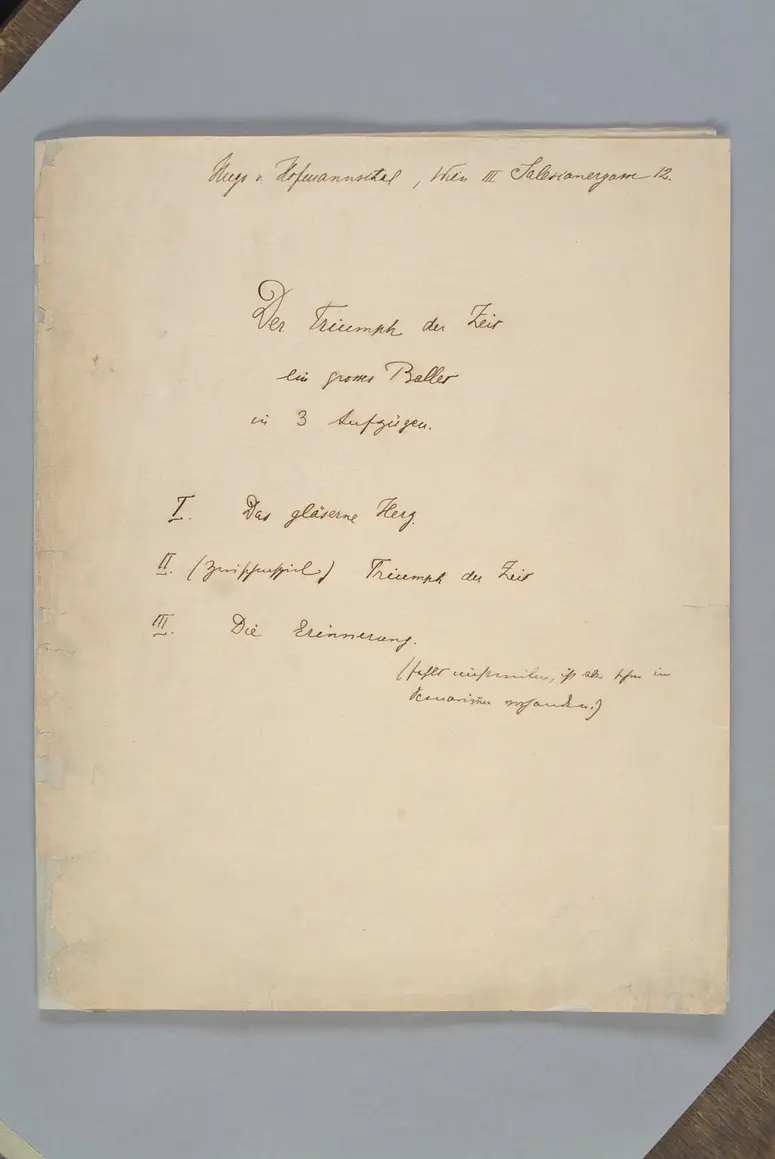 Hugo v. Hofmannsthal, Wien III Salesianergasse 12.
Der Triumph der Zeit
ein grosses Ballet
in 3 Aufzügen.
I. Das gläserne Herz.
II. (Zwischenspiel) Triumph der Zeit
III. Die Erinnerung.
(fehlt einstweilen, ist aber schon im
Scenarium vorhanden.)